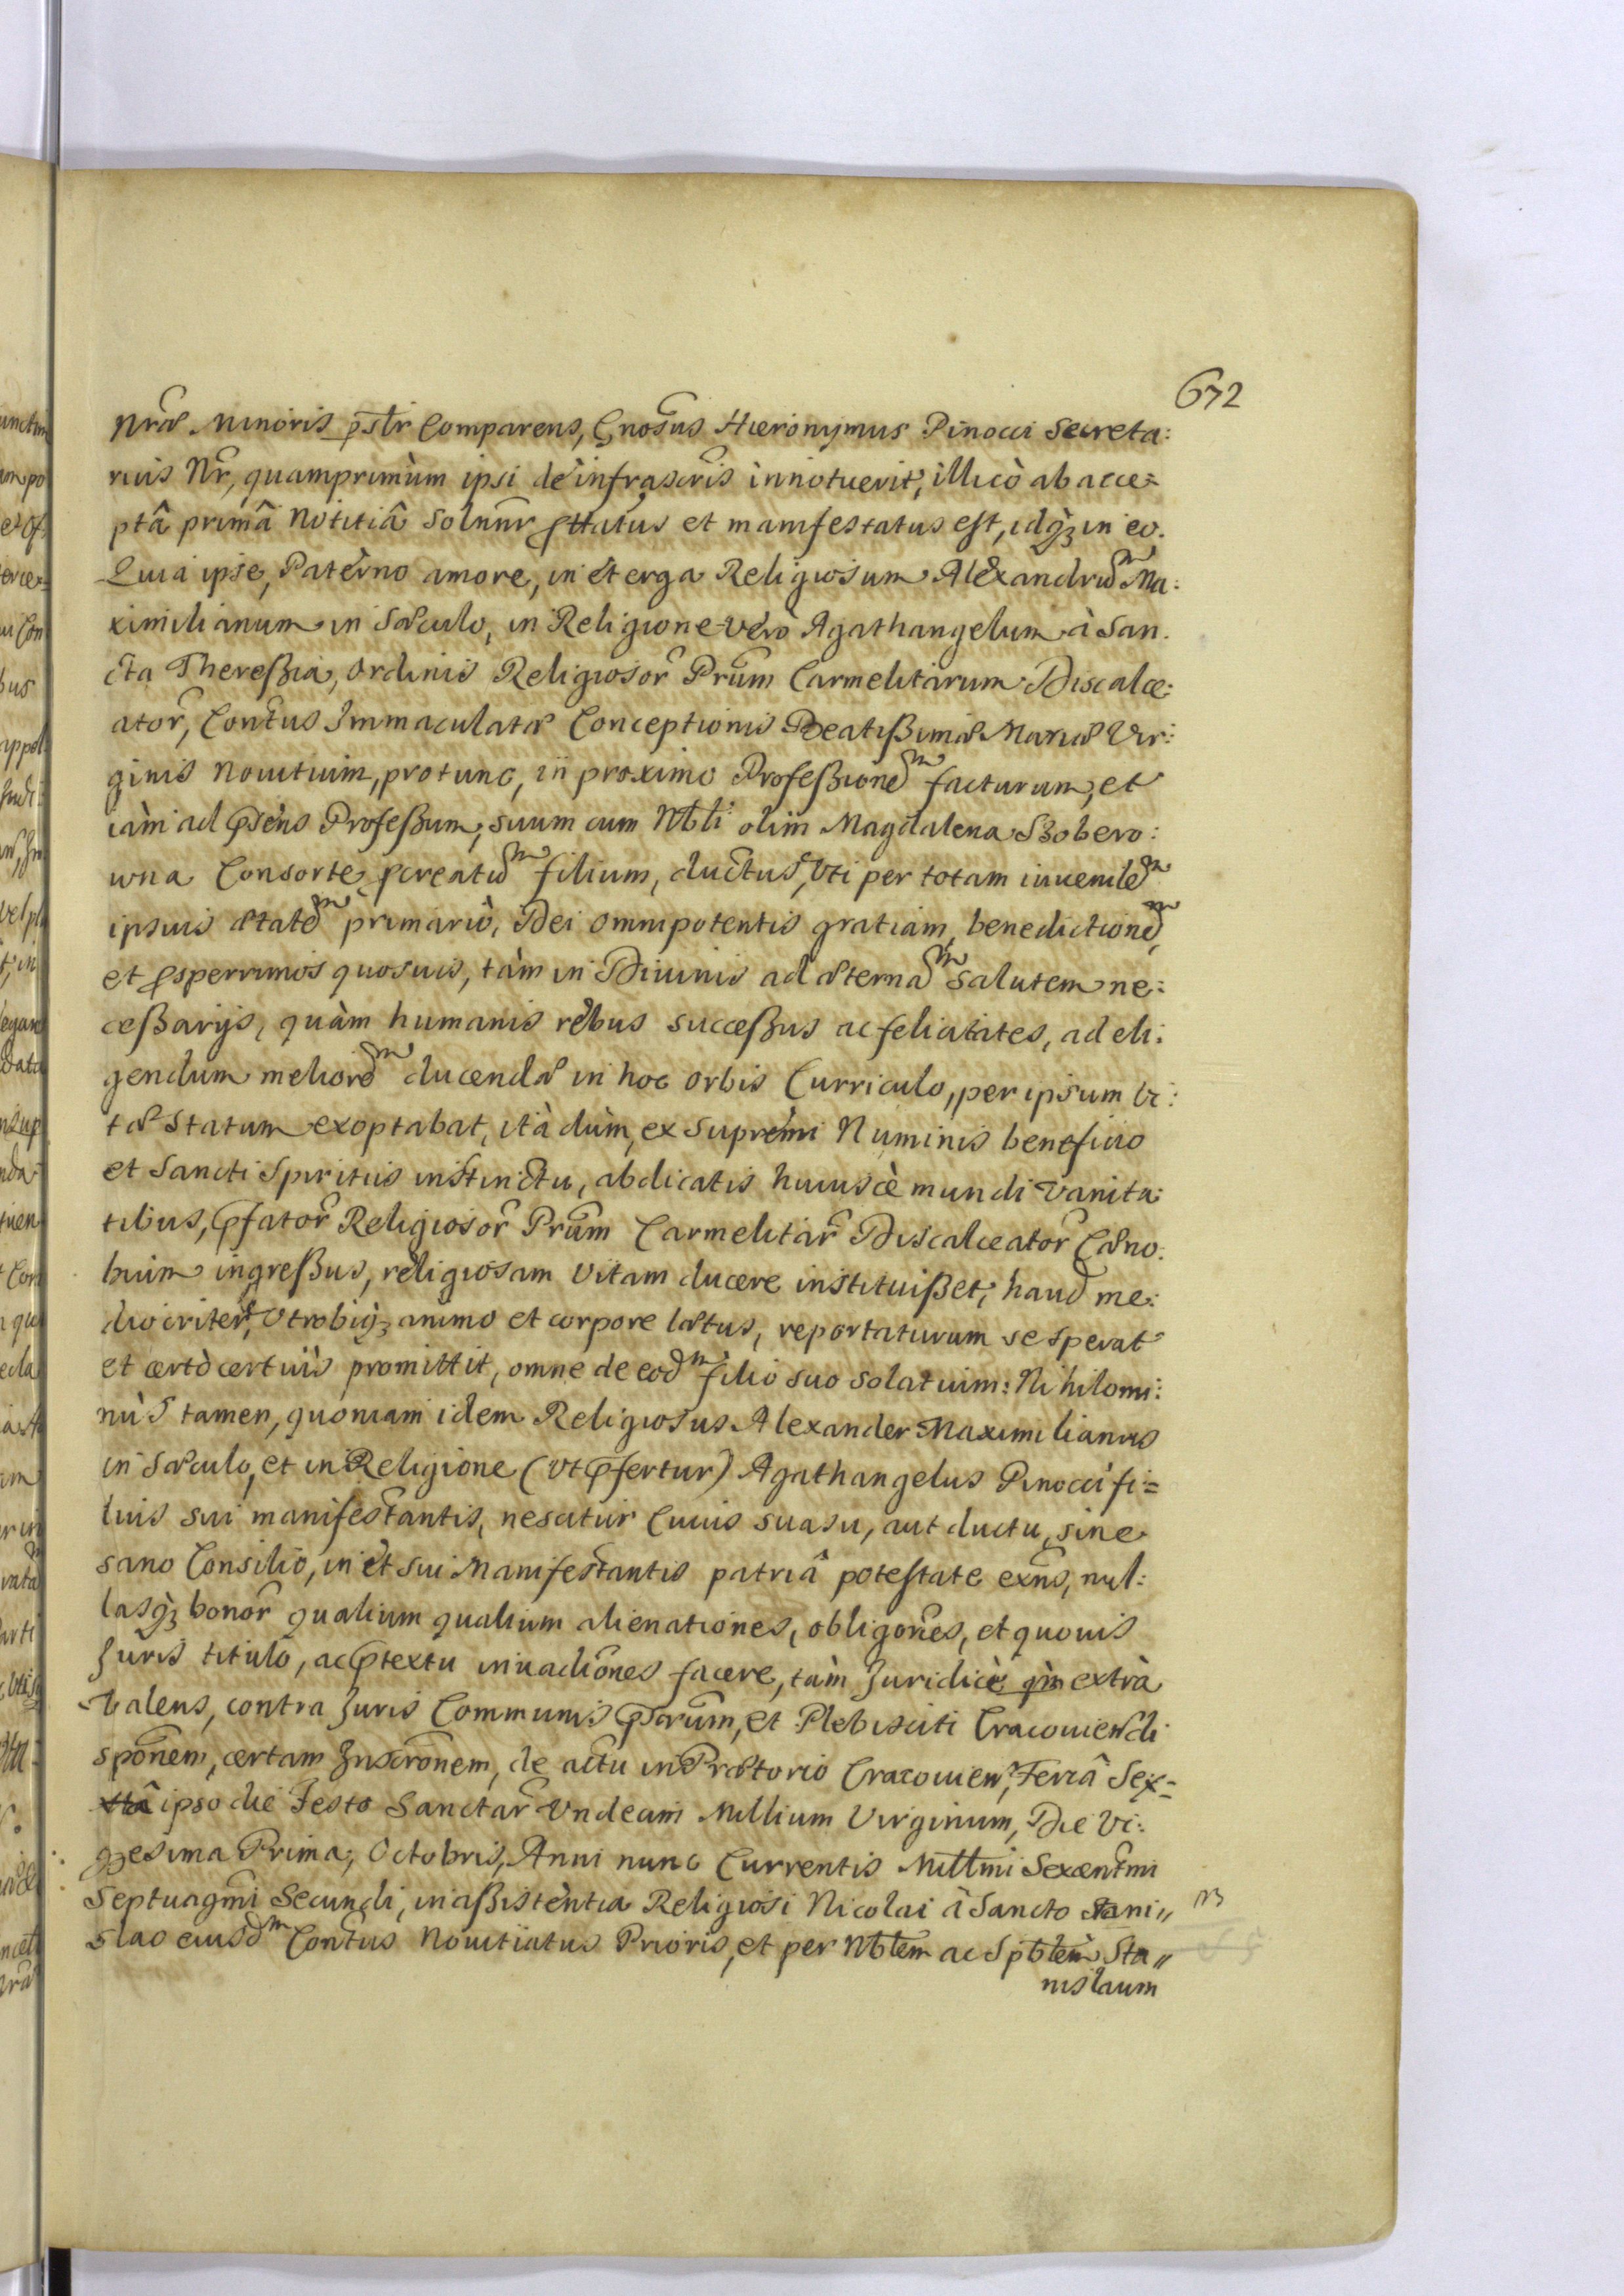 672
Nræ Minoris pstr Comparens, Gnosus Hieronymus Pinocci Secreta:
rius Nr, quamprimùm ipsi de infrascris innotuerit, illicò ab acce=
ptâ primâ notitiâ solnnr pttatus et manifestatus est, idq3 in eo.
Quia ipse, Paterno amore, in et erga Religiosum Alexandrum Ma:
ximilianum in Sæculo, in Religione verò Agathangelum à San.
cta Thereßia, Ordinis Religiosor Prum Carmelitarum Discalce:
ator, Contus Immaculatæ Conceptionis Beatißimæ Mariæ Vir:
ginis Nouitium, protunc, in proximo Profeßionem facturum, et
iàm ad psens Profeßum, suum cum Nbli olim Magdalena Szobero:
wna Consorte pcreatum filium, ductus, vti per totam iuuenilem
ipsius ætatem primariò, Dei omnipotentis gratiam, benedictionem,
et psperrimos quosuis, tàm in Diuinis ad æternam salutem ne:
ceßarijs, quàm humanis rebus succeßus ac felicitates, ad eli:
gendum meliorem ducendæ in hoc orbis Curriculo, per ipsum vi:
tæ statum exoptabat, ità dùm, ex Supremi Numinis beneficio
et Sancti Spiritus instinctu, abdicatis huiuscè mundi vanita
tibus, pfator Religiosor Prum Carmelitar Discalceator Cæno:
bium ingreßus, religiosam vitam ducere instituißet, haud me:
diocriter, vtrobiq3 animo et corpore lætus, reportaturum se sperat
et certò certius promittit, omne de eodm filio suo solatium: Nihilomi:
nùs tamen, quoniam idem Religiosus Alexander Maximilianus
in Sæculo, et in Religione (vt pfertur) Agathangelus Pinocci fi=
lius sui manifestantis, nescitur Cuius suasu, aut ductu, sine
sano Consilio, in et sui Manifestantis patriâ potestate exns, nul:
lasq3 bonor qualium qualium alienationes, obligones, et quouis
Juris titulo, ac ptextu inuadiones facere, tàm Juridicè qm extrà
valens, contra Juris Communis pscrum, et Plebisciti Cracouien di
sponem, certam Inscronem, de actu in Prætorio Cracouien, Feriâ Sex=
tâ ipso die Festo Sanctar Vndecim Millium Virginum, Die Vi:
gesima Prima, Octobris, Anni nunc Currentis Millmi Sexcentmi
Septuagmi Secundi, in aßistentia Religiosi Nicolai à Sancto Stani„
slao eiusdm Contus Nouitiatus Prioris, et per Nblem ac Spblem Sta„
nislaum